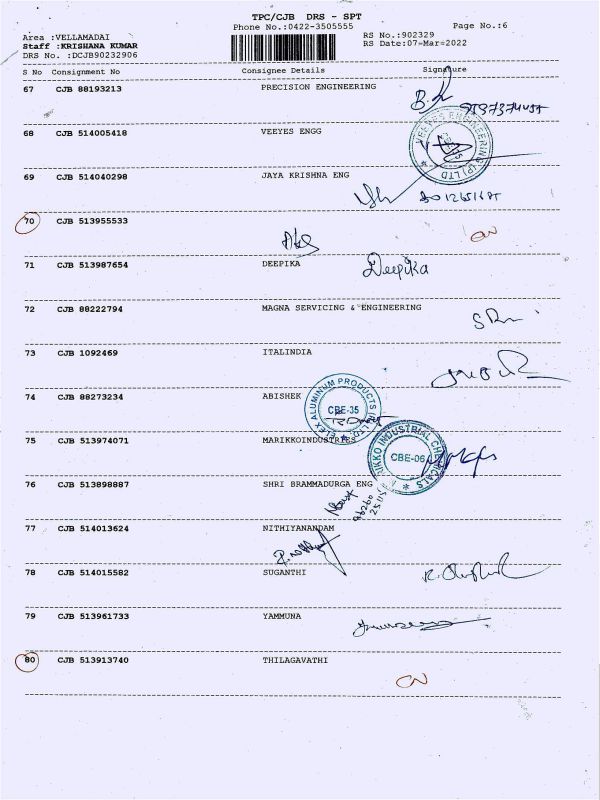 TPC/CJB DRS - SPT
Phone No.:0422-3505555
Page No.:6
Area :VELLAMADAI
RS No.:902329
Staff :KRISHANA KUMAR
RS Date:07-Mar-2022
DRS No. :DCJB90232906
S No Consignment No Consignee Details Signature
67 CJB 88193213 PRECISION ENGINEERING
68 CJB 514005418 VEEYES ENGG
VEEYES ENGINEERING (P) LTD
69 CJB 514040298 JAYA KRISHNA ENG
70 CJB 513955533
71 CJB 513987654 DEEPIKA Deepika
72 CJB 88222794 MAGNA SERVICING & ENGINEERING
73 CJB 1092469 ITALINDIA
74 CJB 88273234 ABISHEK
CBE-35
75 CJB 513974071 MARIKKOINDUSTRIES
CBE-06
76 CJB 513898887 SHRI BRAMMADURGA ENG
77 CJB 514013624 NITHIYANANDAM
78 CJB 514015582 SUGANTHI
79 CJB 513961733 YAMMUNA
80 CJB 513913740 THILAGAVATHI